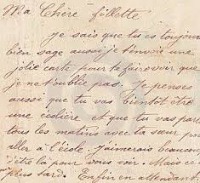 Ma Chère fillette
je sais que tu es toujours
bien sage aussi je t'envoie une
jolie carte pour te faire voir que
je ne t'oublie pas. Je pense
aussi que tu vas bientôt être
une écolière et que tu vas
tous les matins avec ta sœur pour
aller à l'école. J'aimerais beaucoup
être là pour vous voir. Mais ce
plus tard. Enfin en attendant